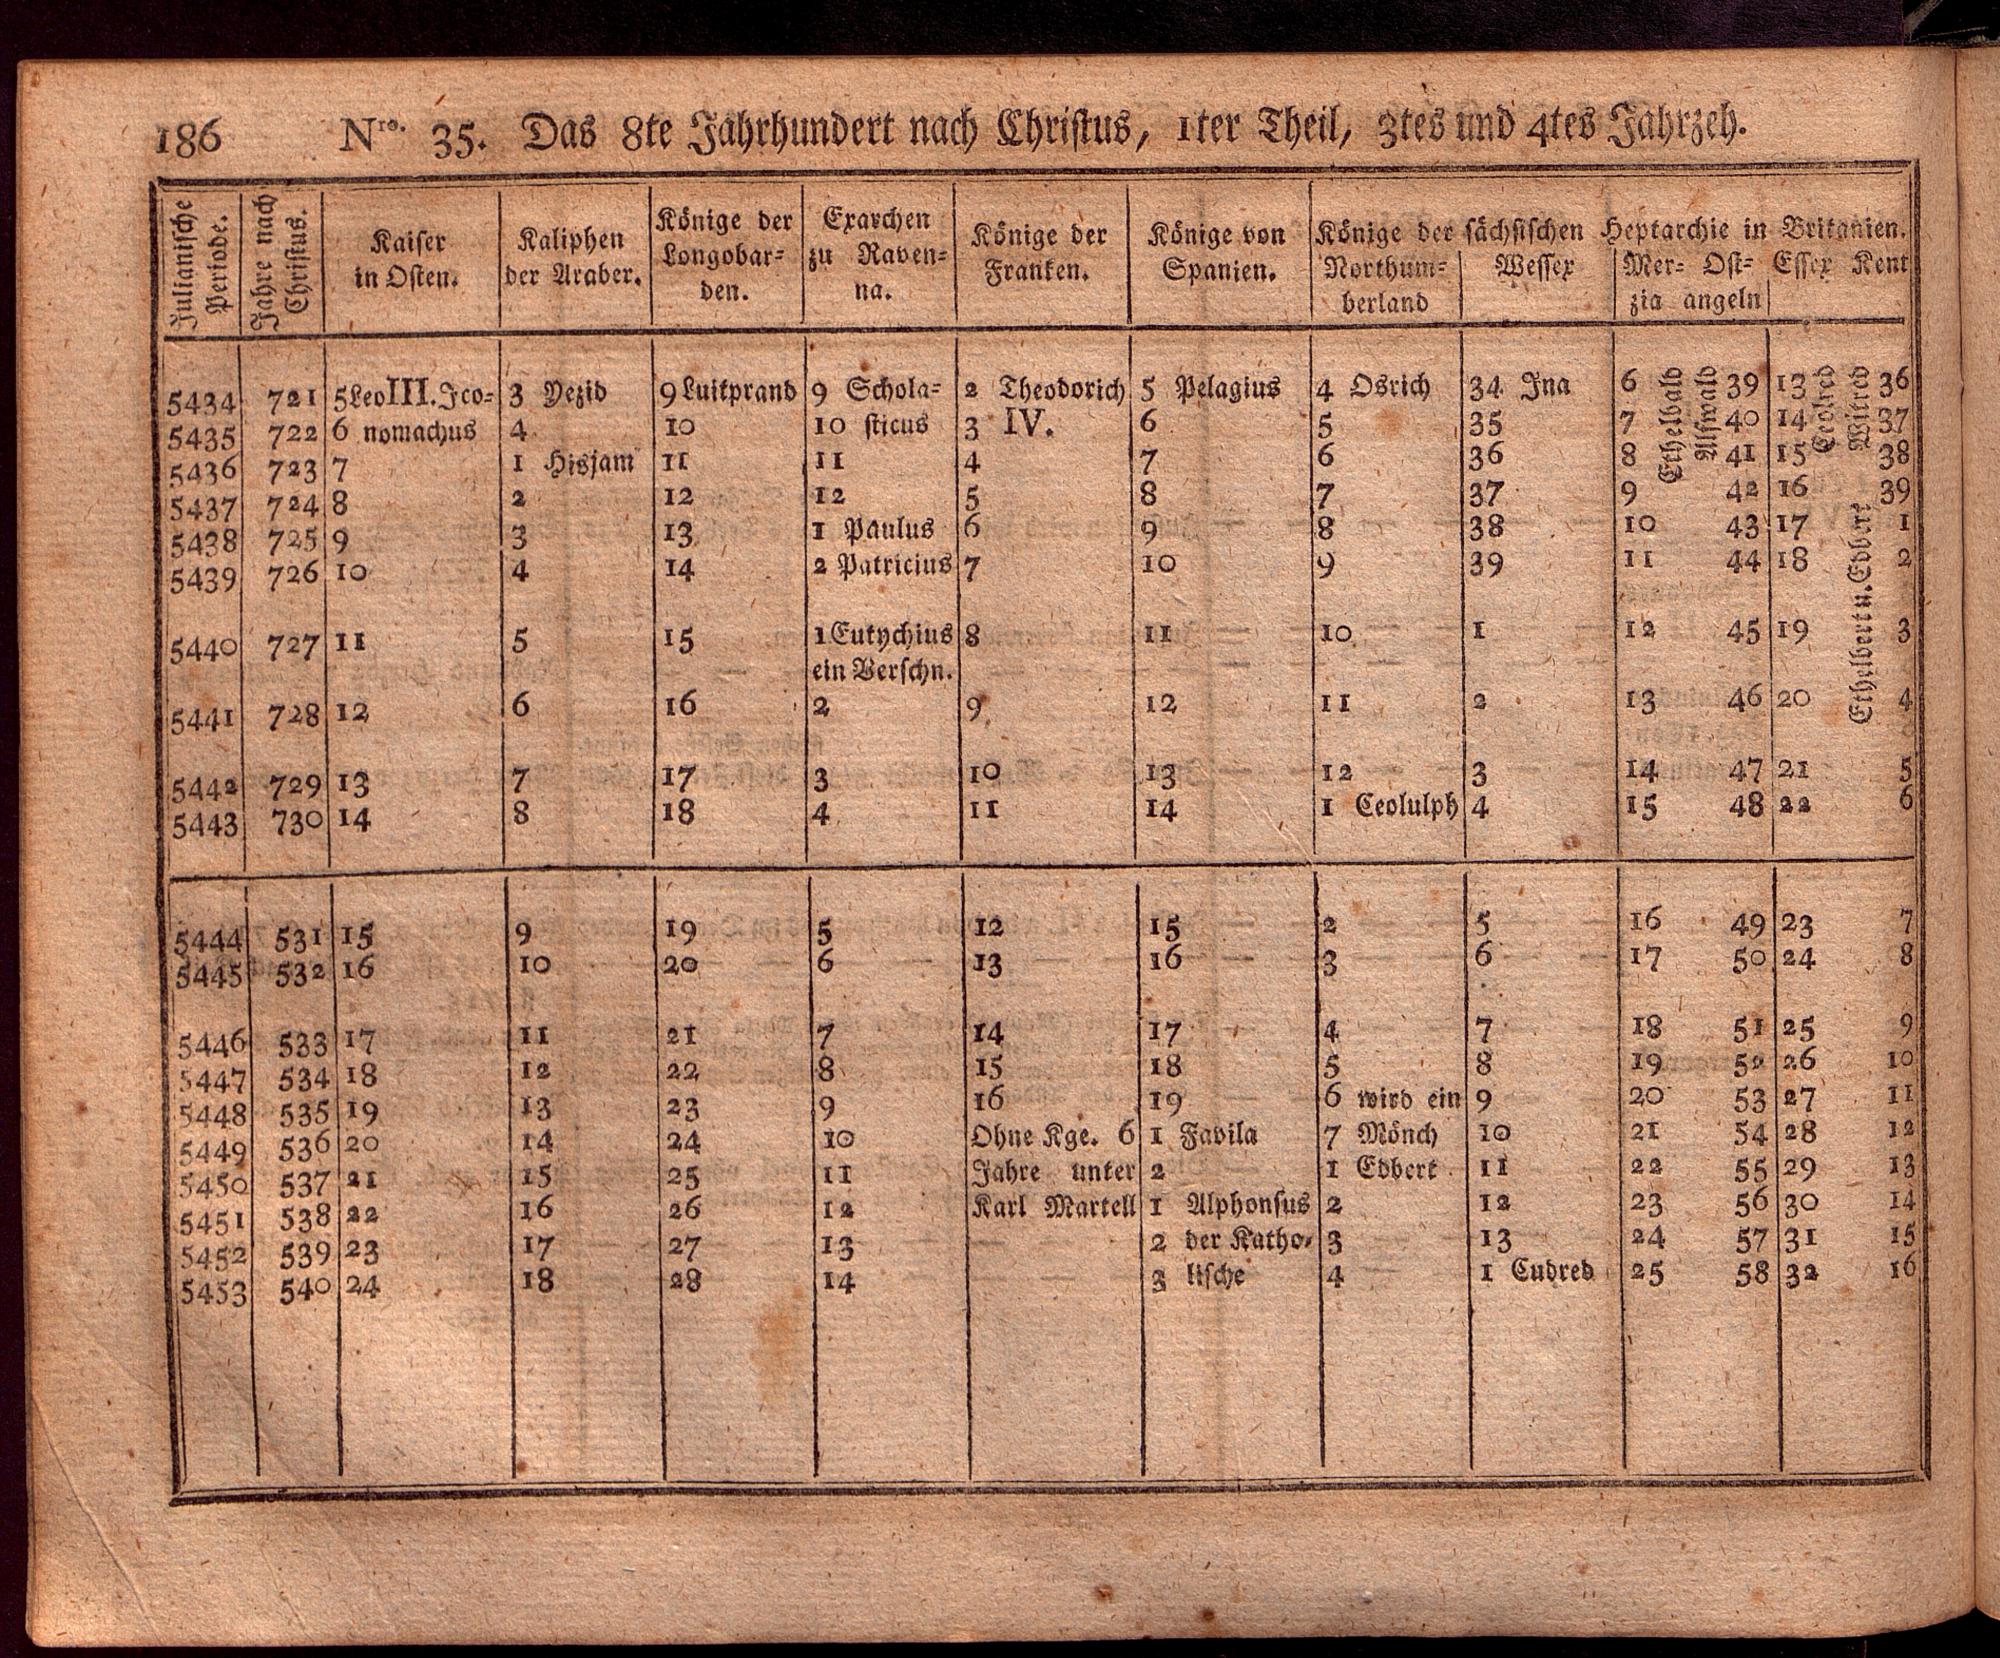 186 Nro. 35. Das 8te Jahrhundert nach Christus, 1ter Theil, 3tes und 4tes Jahrzeh.
Julianische Periode. Jahre nach Christus. Kaiser in Osten. Kaliphen der Araber. Könige der Longobar- den. Exarchen zu Raven- na. Könige der Franken. Könige von Spanien. Könige der sächsischen Heptarchie in Britanien. Northum- berland Wessex Mer- zia Ost- angeln Essex Kent
5434 721 5 Leo III. Ico- 3 Yezid 9 Luitprand 9 Schola- 2 Theodorich 5 Pelagius 4 Osrich 34 Ina 6 Ethelbald Alfwald 39 13 Ceolred Witred 36
5435 722 6 nomachus 4 10 10 sticus 3 IV. 6 5 35 7 40 14 37
5436 723 7 1 Hisjam 11 11 4 7 6 36 8 41 15 38
5437 724 8 2 12 12 5 8 7 37 9 42 16 39
5438 725 9 3 13 1 Paulus 6 9 8 38 10 43 17 Ethelbert u. Edbert 1
5439 726 10 4 14 2 Patricius 7 10 9 39 11 44 18 2
5440 727 11 5 15 1 Eutychius 8 11 10 1 12 45 19 3
ein Verschn.
5441 728 12 6 16 2 9 12 11 2 13 46 20 4
5442 729 13 7 17 3 10 13 12 3 14 47 21 5
5443 730 14 8 18 4 11 14 1 Ceolulph 4 15 48 22 6
5444 531 15 9 19 5 12 15 2 5 16 49 23 7
5445 532 16 10 20 6 13 16 3 6 17 50 24 8
5446 533 17 11 21 7 14 17 4 7 18 51 25 9
5447 534 18 12 22 8 15 18 5 8 19 52 26 10
5448 535 19 13 23 9 16 19 6 wird ein 9 20 53 27 11
5449 536 20 14 24 10 Ohne Kge. 6 1 Favila 7 Mönch 10 21 54 28 12
5450 537 21 15 25 11 Jahre unter 2 1 Edbert 11 22 55 29 13
5451 538 22 16 26 12 Karl Martell 1 Alphonsus 2 12 23 56 30 14
5452 539 23 17 27 13 2 der Katho- 3 13 24 57 31 15
5453 540 24 18 28 14 3 lische 4 1 Cudred 25 58 32 16